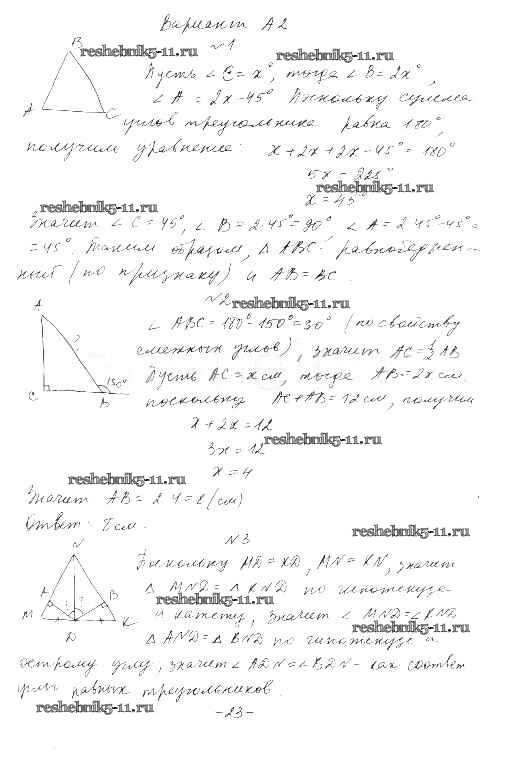 Вариант А2
reshebnik5-11.ru
reshebnik5-11.ru
№1
B
Пусть ∠C = x°, тогда ∠B = 2x°,
∠A = 2x-45° Поскольку сумма
A C
углов треугольника равна 180°,
получим уравнение: x+2x+2x-45° = 180°
5x = 225°
reshebnik5-11.ru
x = 45°
reshebnik5-11.ru
Значит ∠C = 45°, ∠B = 2·45° = 90° ∠A = 2·45°-45° =
= 45°. Таким образом, △ABC - равнобедрен-
ный (по признаку) и AB = BC
№2
reshebnik5-11.ru
A
∠ABC = 180°-150° = 30° (по свойству
?
смежных углов), значит AC = ½ AB
150°
Пусть AC = x см, тогда AB = 2x см.
C B
поскольку AC+AB = 12 см, получим
x + 2x = 12
reshebnik5-11.ru
3x = 12
x = 4
reshebnik5-11.ru
Значит AB = 2·4 = 8 (см)
Ответ: 8 см.
reshebnik5-11.ru
№3
N
Поскольку MD = KD, MN = KN, значит
△MND = △KND по гипотенузе
reshebnik5-11.ru
A B
M K
и катету, значит ∠MND = ∠KND
reshebnik5-11.ru
D
△AND = △BND по гипотенузе и
острому углу, значит ∠ADN = ∠BDN - как соответ
углы равных треугольников.
reshebnik5-11.ru
-23-